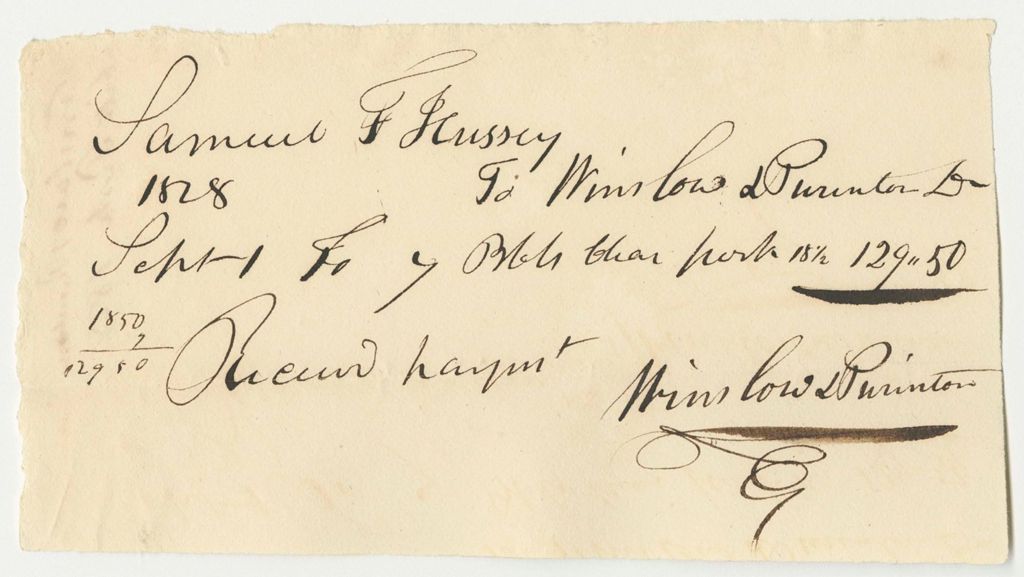 Samuel F Hussey
1828 To Winslow & Purinton Dr
Sept 1 To 7 Bbls Clear pork 18½ 129"50
1850
7
12950
Received paymt
Winslow & Purinton